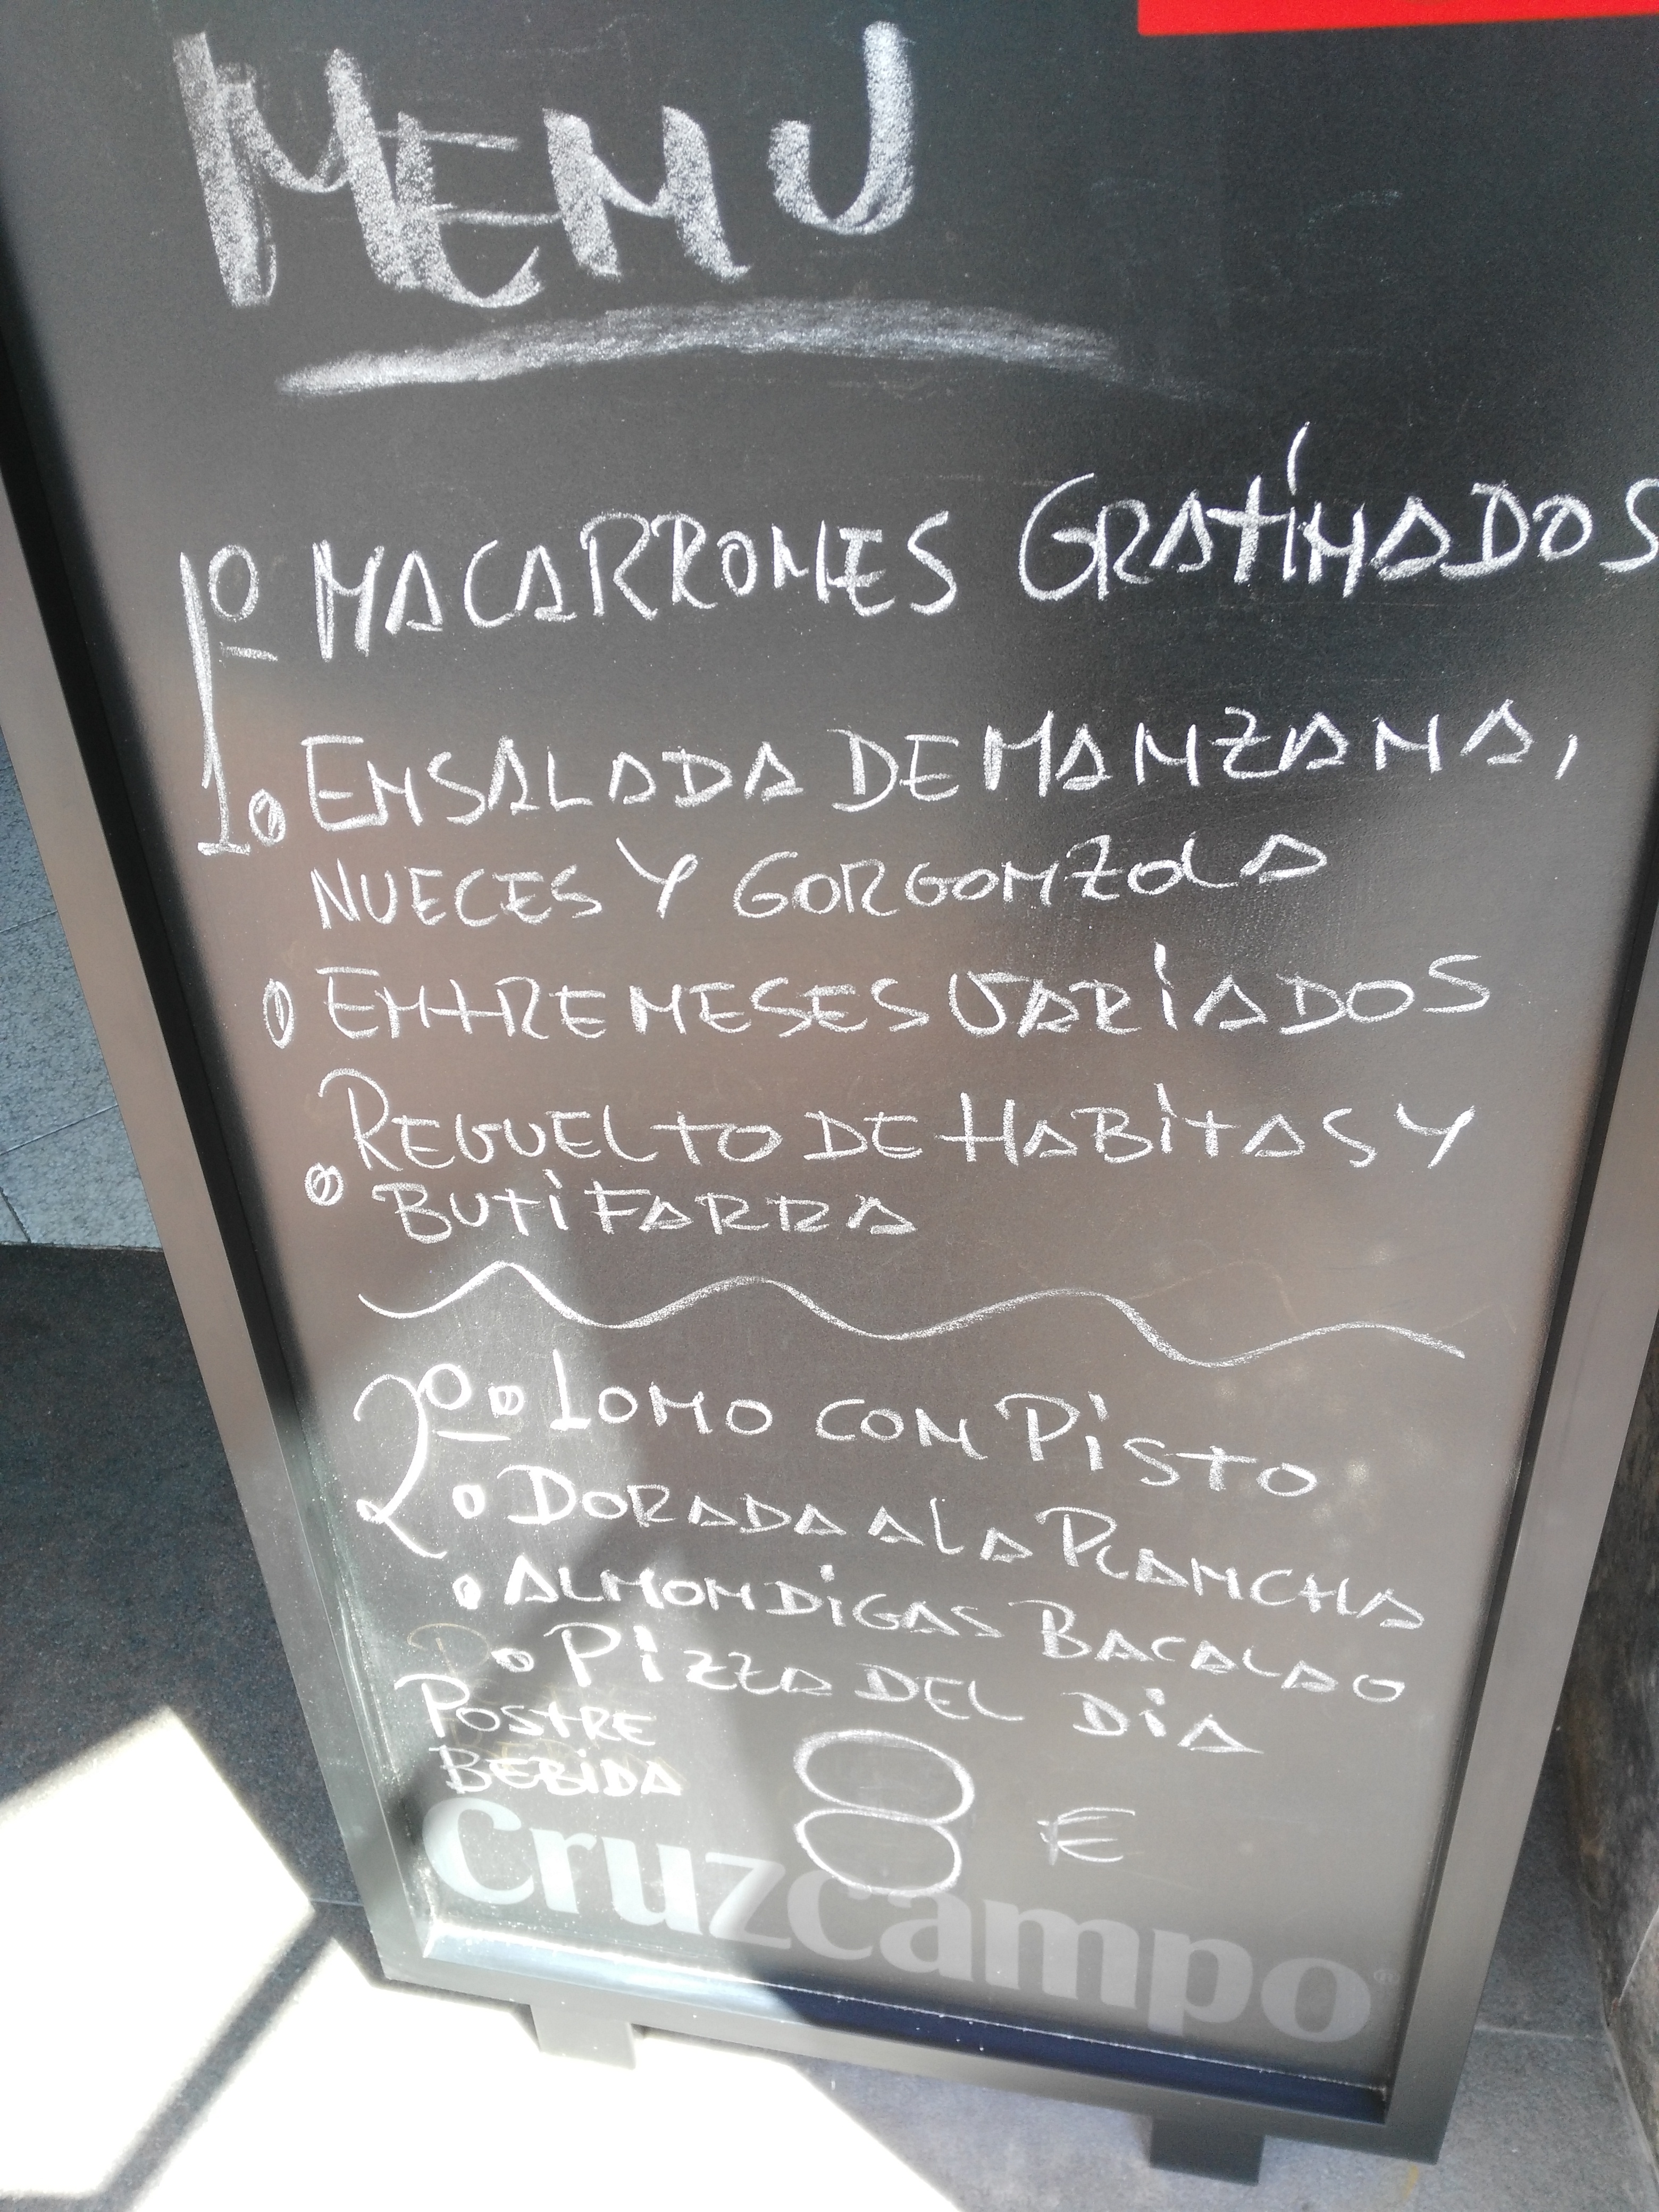 MENU
1º MACARRONES GRATINADOS
ENSALADA DE MANZANA,
NUECES Y GORGONZOLA
ENTREMESES VARIADOS
REVUELTO DE HABITAS Y
BUTIFARRA
2º LOMO CON PISTO
DORADA A LA PLANCHA
ALMONDIGAS BACALAO
PIZZA DEL DiA
POSTRE
BEBIDA
8 €
Cruzcampo®